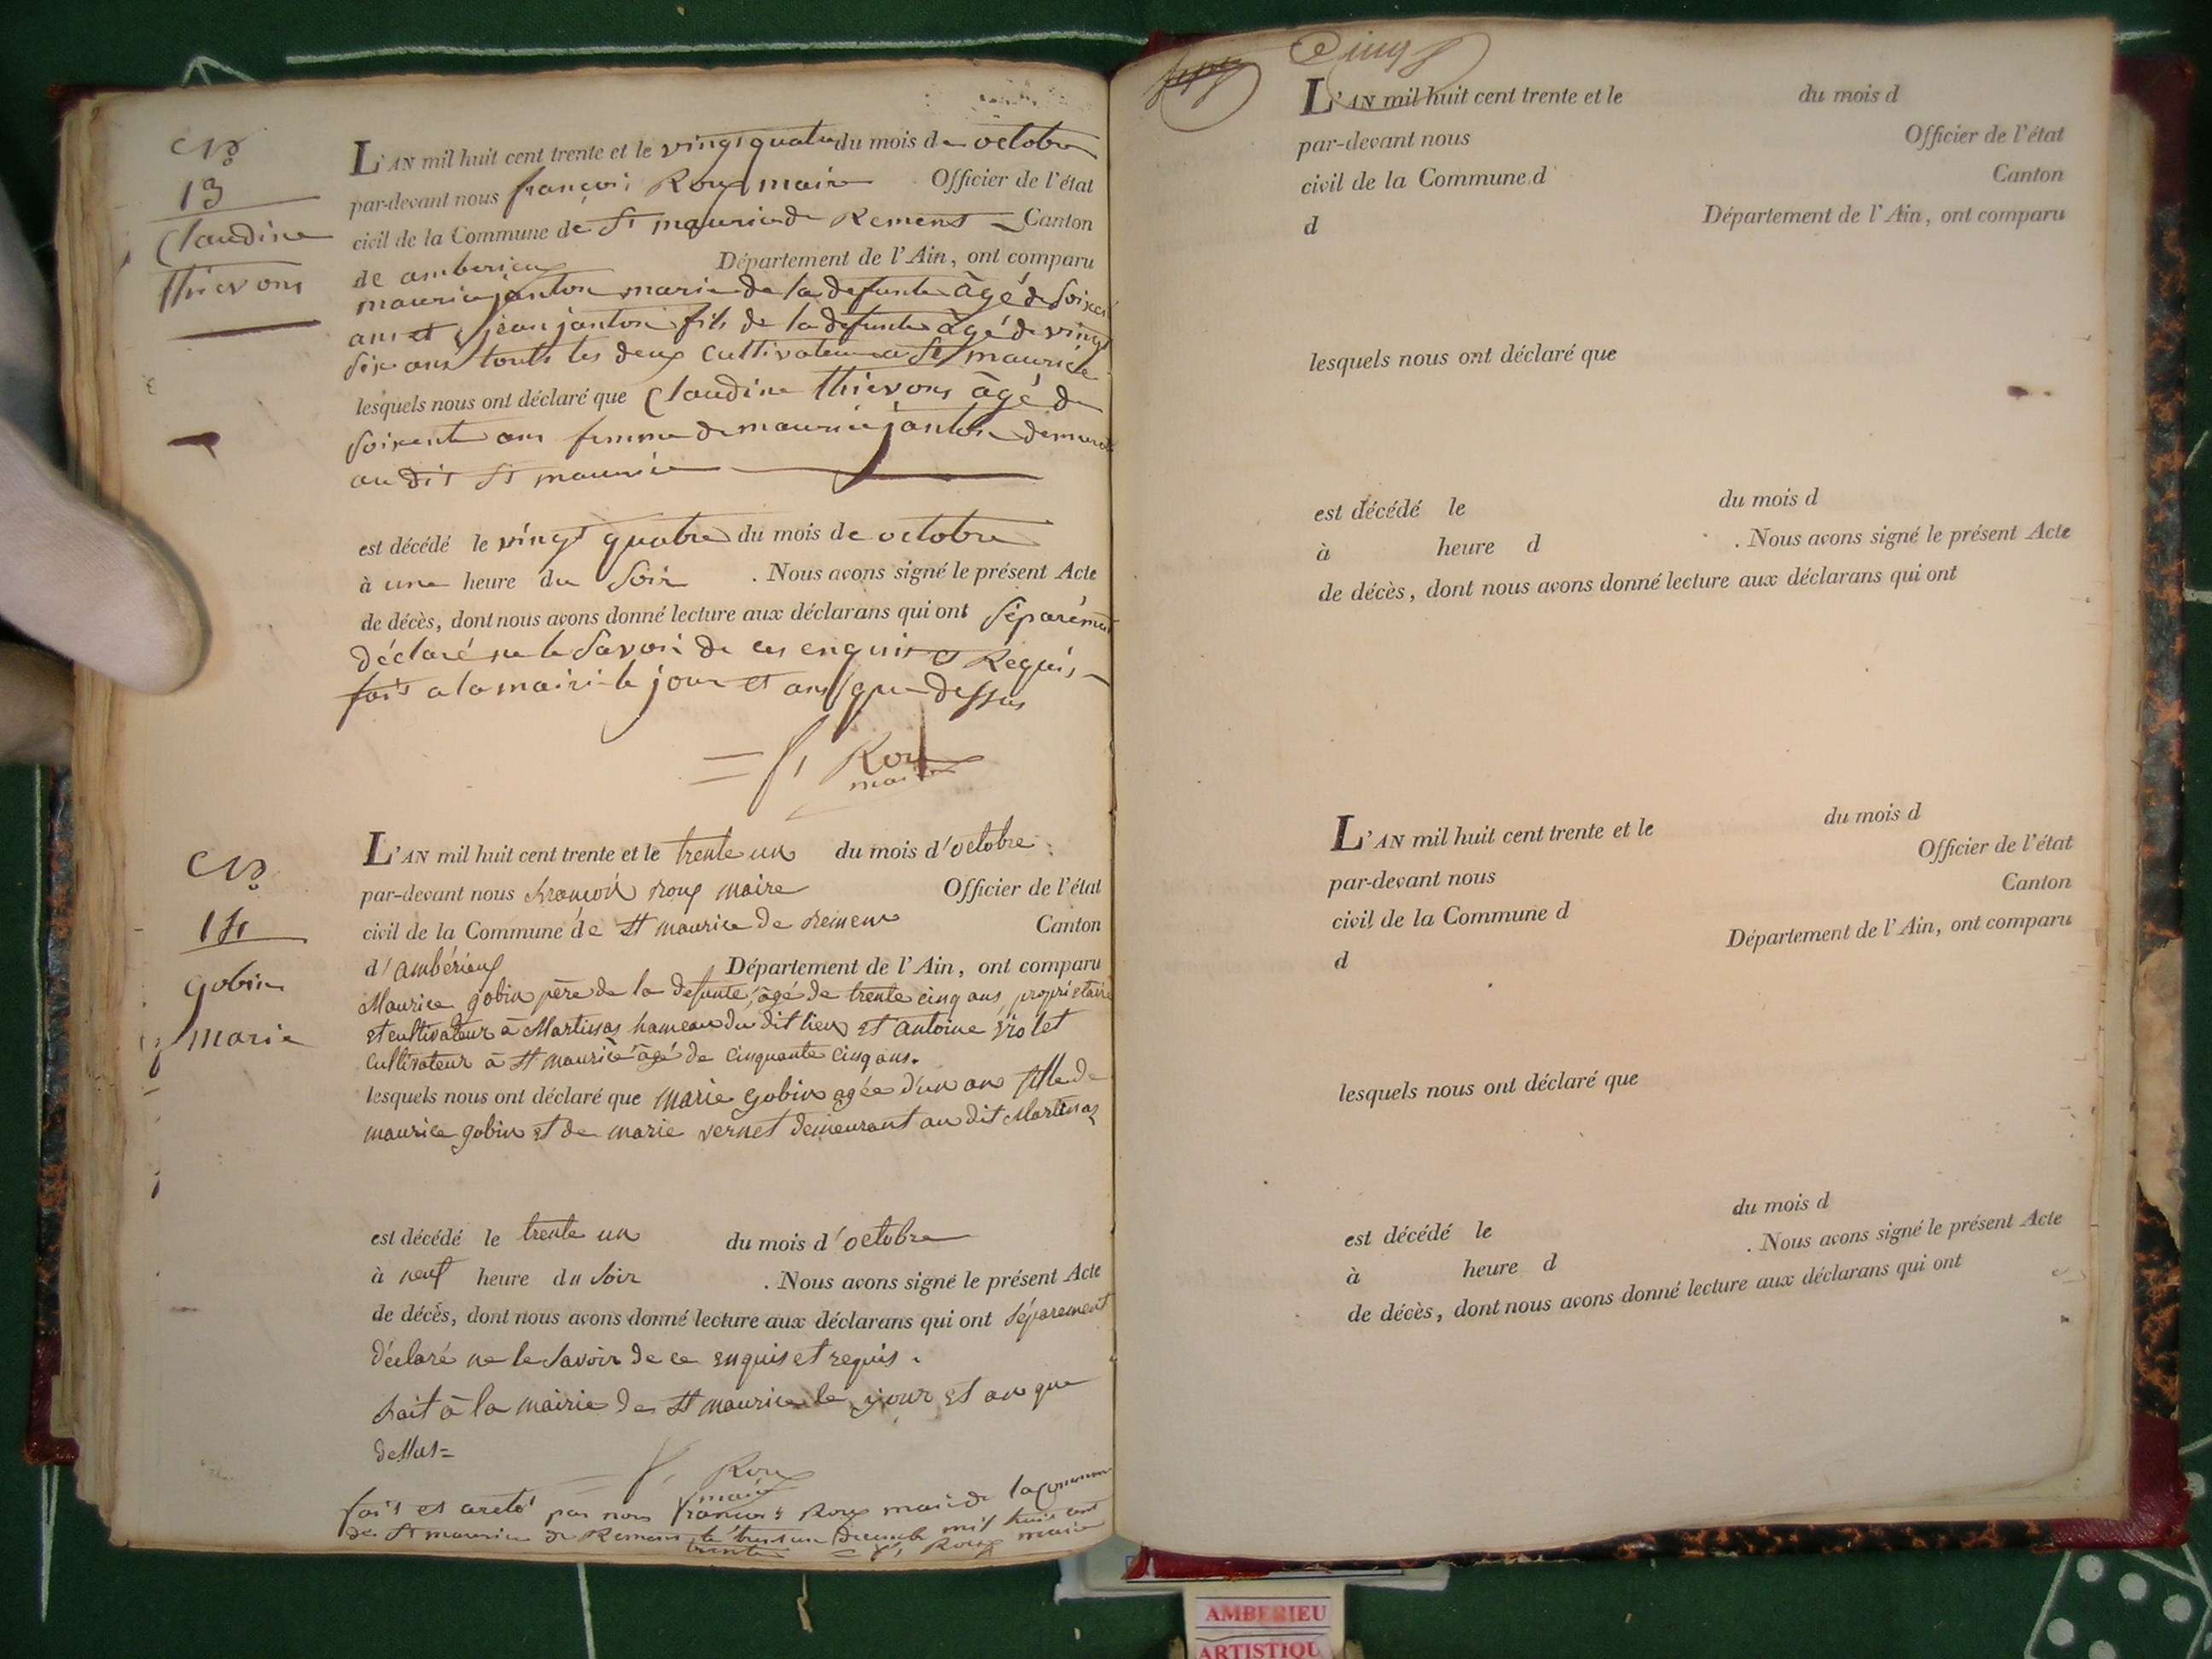 N°
13
Claudine
thievons
L'AN mil huit cent trente et le vingt quatre du mois de octobre
par-devant nous françois Roux maire Officier de l'état
civil de la Commune de St maurice de Remens Canton
de amberieux Département de l'Ain, ont comparu
maurice janton marie de la defunte âgé de soixente
ans et jean janton fils de la defunte âgé de vingt
six ans touts les deux cultivateur a St maurice
lesquels nous ont déclaré que Claudine thievons âgé de
soixente ans femme de maurice janton
au dit St maurice
est décédé le vingt quatre du mois de octobre
à une heure du soir . Nous avons signé le présent Acte
de décès, dont nous avons donné lecture aux déclarans qui ont séparément
déclaré ne le savoir de ces enquis et Requis
fait a la mairie le jour et ans que dessus
= f, Roux
maire
N°
14
gobin
marie
L'AN mil huit cent trente et le trente un du mois d'octobre
par-devant nous françois roux maire Officier de l'état
civil de la Commune de St maurice de remens Canton
d'ambérieux Département de l'Ain, ont comparu
Maurice gobin père de la defunte, âgé de trente cinq ans, propriétaire
et cultivateur à Martinaz hameau du dit lieu et antoine violet
cultivateur à St maurice âgé de cinquante cinq ans.
lesquels nous ont déclaré que marie gobin agée d'un an fille de
maurice gobin et de marie vernet demeurant au dit Martinaz
est décédé le trente un du mois d'octobre
à neuf heure du soir . Nous avons signé le présent Acte
de décès, dont nous avons donné lecture aux déclarans qui ont séparement
déclaré ne le savoir de ce enquis et requis.
fait à la mairie de St maurice le jour et an que
dessus =
f, Roux
maire
fait et areté par nous françois Roux maire de la commune
de St maurice de Remens le trent un decembre mil huit cent
trente = f, Roux maire
cinq
L'AN mil huit cent trente et le du mois d
par-devant nous Officier de l'état
civil de la Commune d Canton
d Département de l'Ain, ont comparu
lesquels nous ont déclaré que
est décédé le du mois d
à heure d . Nous avons signé le présent Acte
de décès, dont nous avons donné lecture aux déclarans qui ont
L'AN mil huit cent trente et le du mois d
par-devant nous Officier de l'état
civil de la Commune d Canton
d Département de l'Ain, ont comparu
lesquels nous ont déclaré que
est décédé le du mois d
à heure d . Nous avons signé le présent Acte
de décès, dont nous avons donné lecture aux déclarans qui ont
AMBERIEU
ARTISTIQU